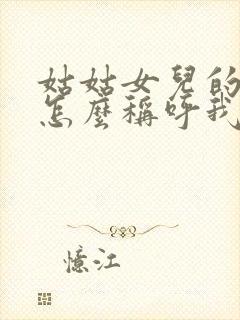 姑姑女兒的
怎麼稱呼我
憶江